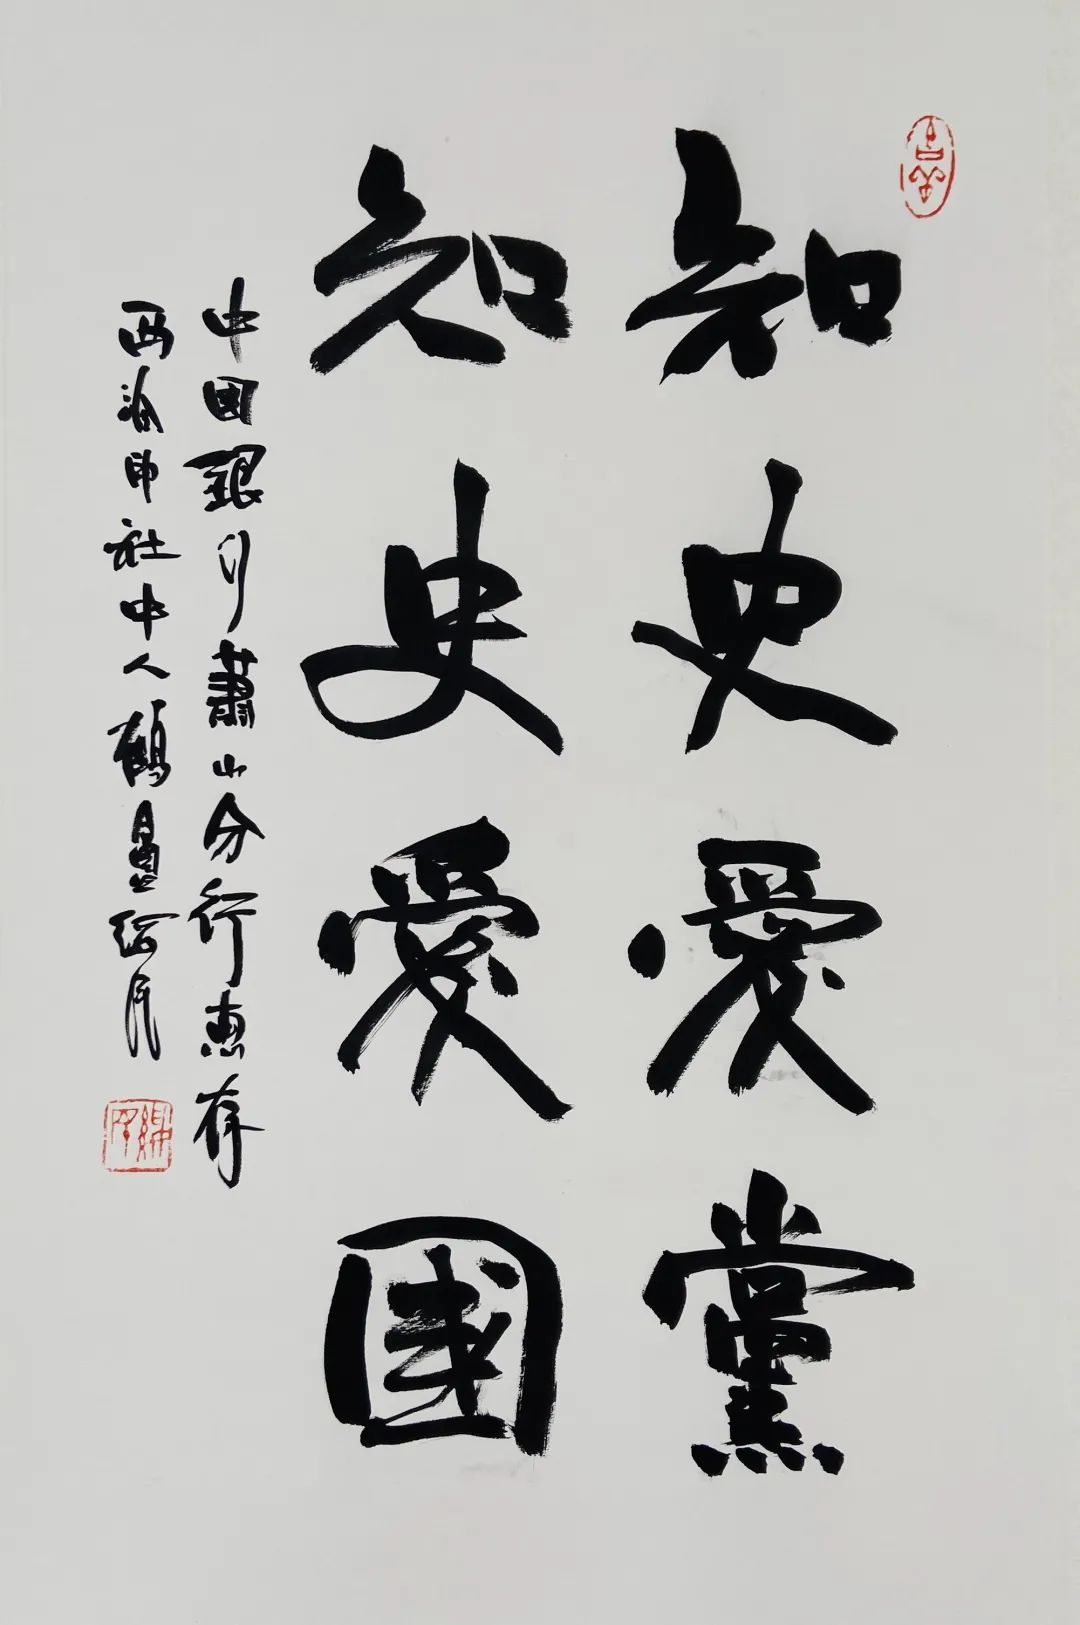 知史愛黨
知史愛國
中國銀行蕭山分行惠存
西泠印社中人鶴